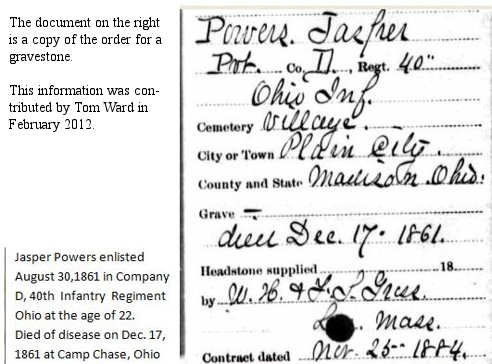 The document on the right
is a copy of the order for a
gravestone.
This information was con-
tributed by Tom Ward in
February 2012.
Jasper Powers enlisted
August 30,1861 in Company
D, 40th Infantry Regiment
Ohio at the age of 22.
Died of disease on Dec. 17,
1861 at Camp Chase, Ohio
Powers. Jasper
Pvt. Co. D., Regt. 40"
Ohio Inf.
Cemetery Village.
City or Town Plain City.
County and State Madison Ohio.
Grave —
died Dec. 17. 1861.
Headstone supplied 18
by W. H. & F. S. Gross.
Mass.
Contract dated Nov. 25- 1884.